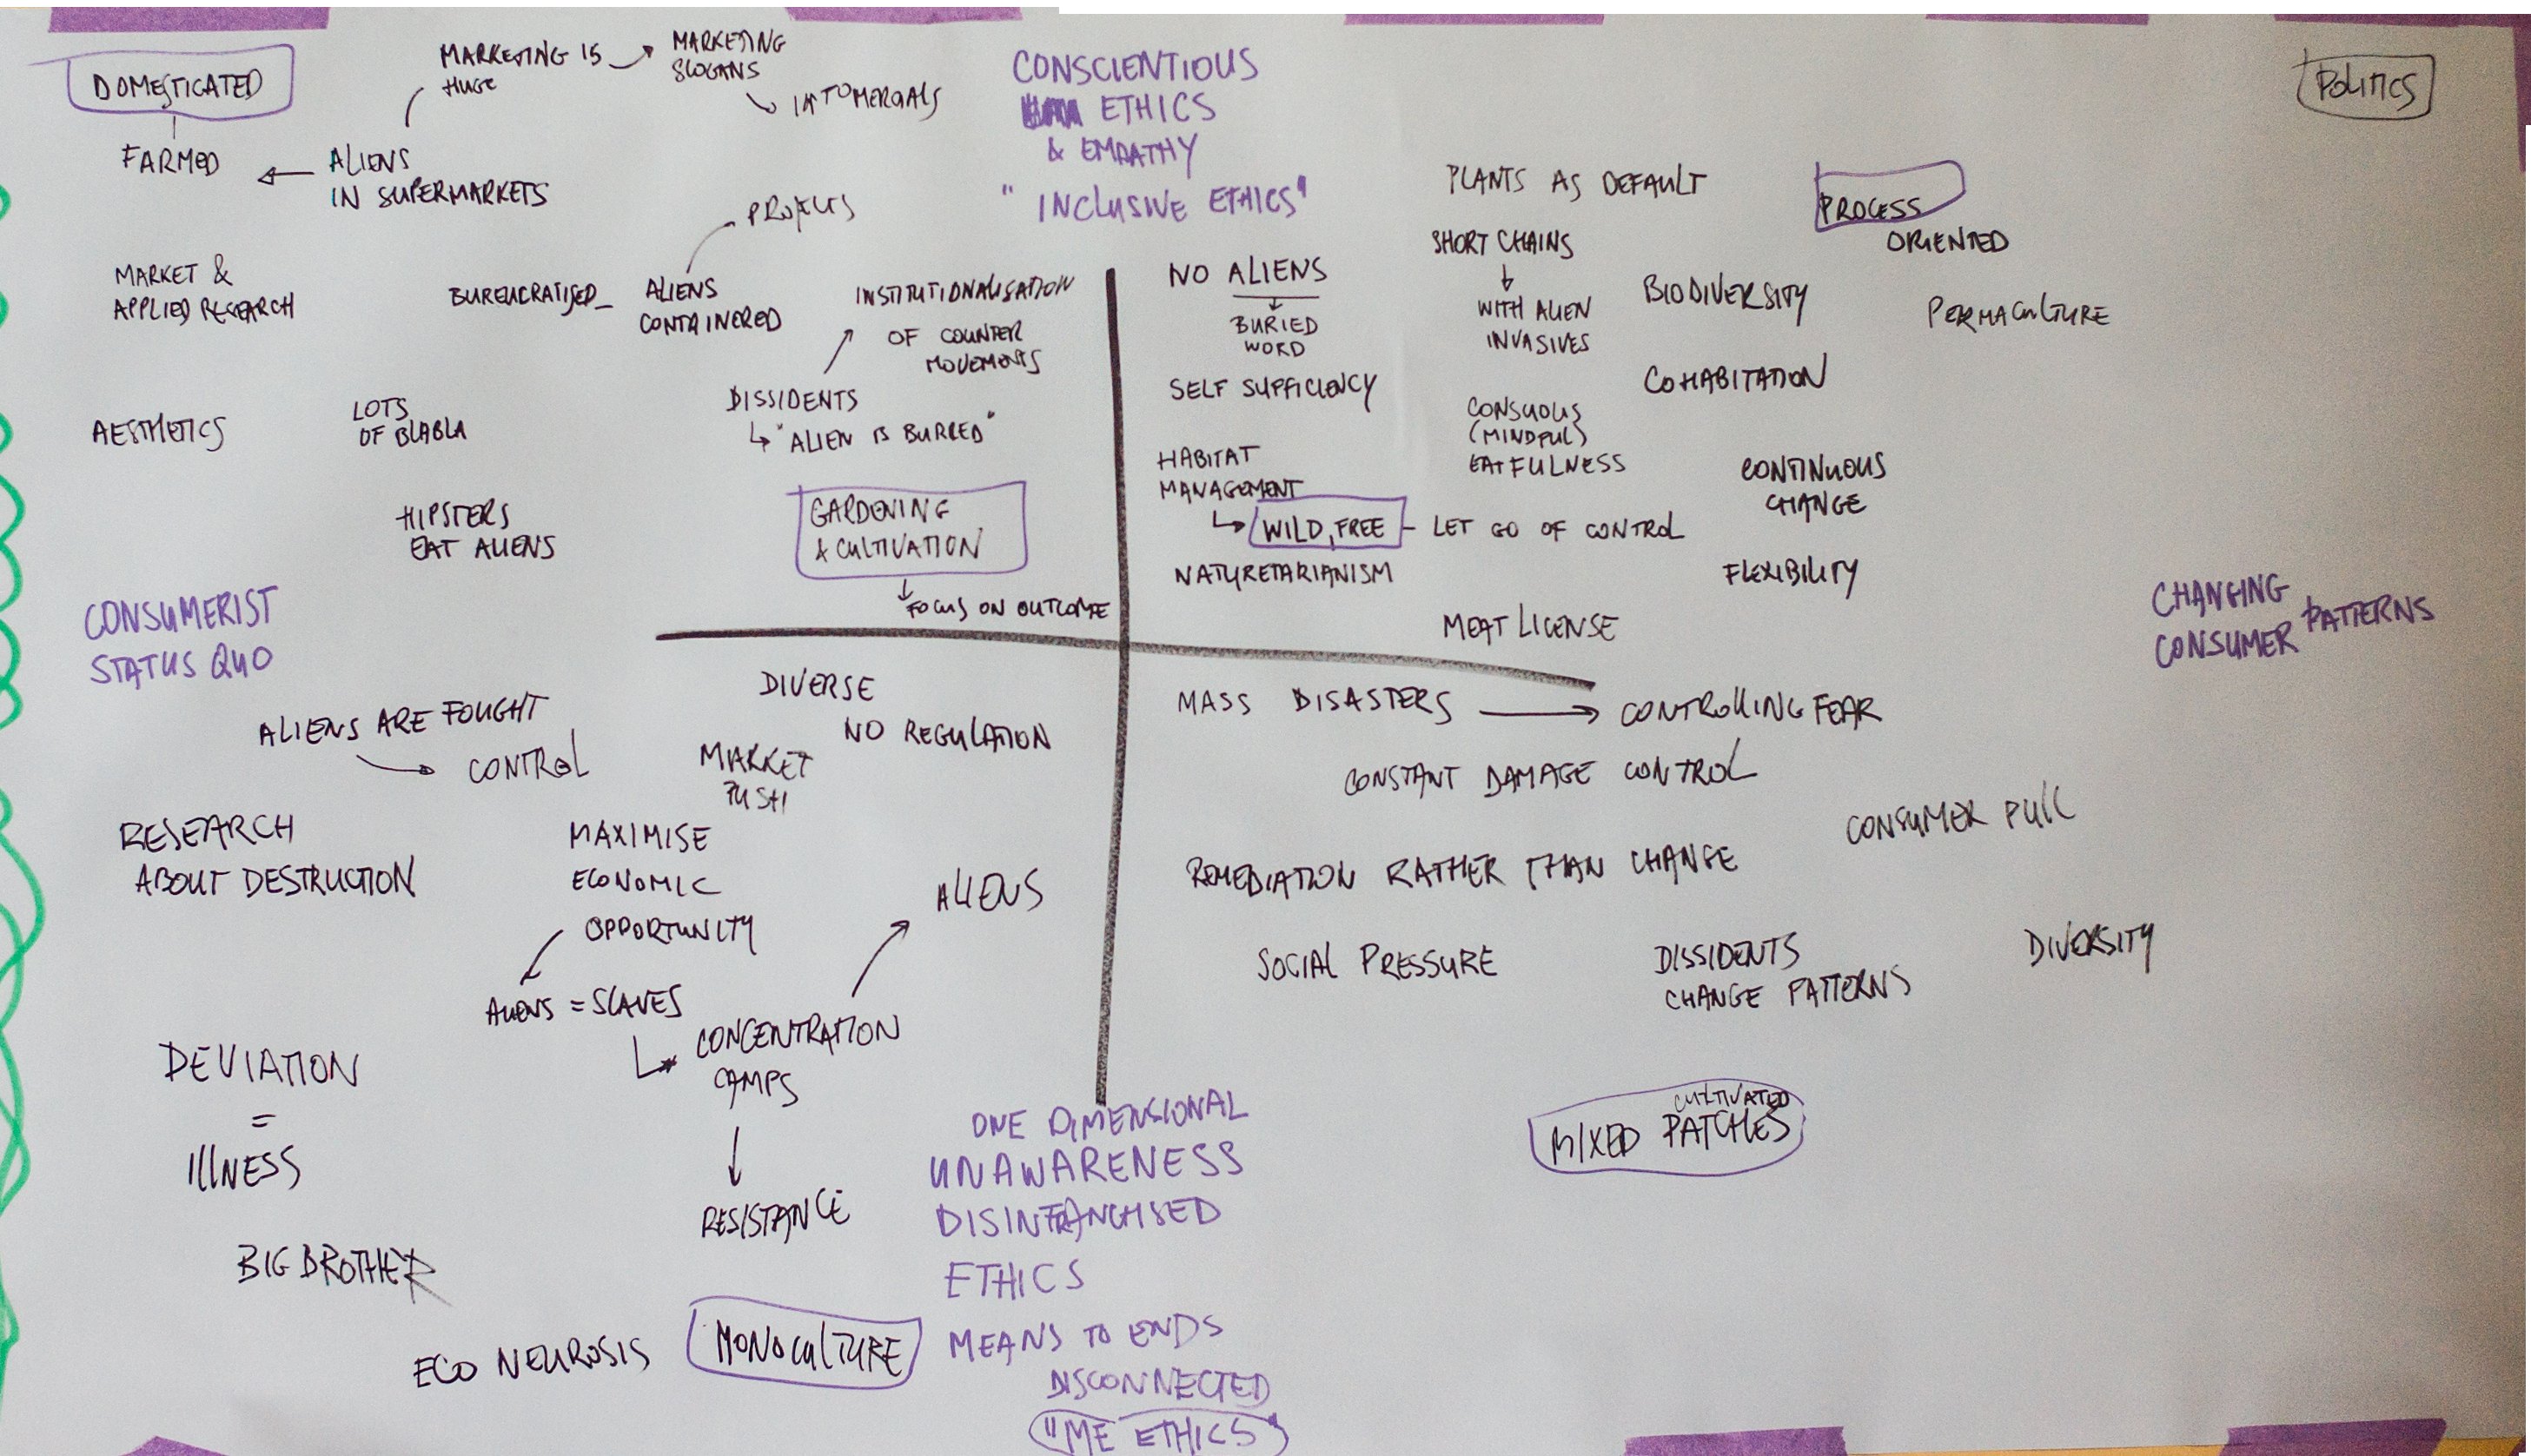 DOMESTICATED
FARMED
ALIENS
IN SUPERMARKETS
MARKETING IS
HUGE
MARKETING
SLOGANS
CONSCIENTIOUS
ETHICS
& EMPATHY
"INCLUSIVE ETHICS"
POLITICS
MARKET &
APPLIED RESEARCH
BUREUCRATISED
ALIENS
CONTAINERED
PROJECTS
INSTITUTIONALISATION
OF COUNTER
MOVEMENTS
DISSIDENTS
"ALIEN IS BURRED"
AESTHETICS
LOTS
OF BLABLA
HIPSTERS
EAT ALIENS
GARDENING
& CULTIVATION
FOCUS ON OUTCOME
CONSUMERIST
STATUS QUO
PLANTS AS DEFAULT
PROCESS
ORIENTED
NO ALIENS
BURIED
WORD
SHORT CHAINS
WITH ALIEN
INVASIVES
BIODIVERSITY
PERMACULTURE
SELF SUFFICIENCY
COHABITATION
CONSUOUS
(MINDFUL)
EATFULNESS
HABITAT
MANAGEMENT
WILD, FREE - LET GO OF CONTROL
CONTINUOUS
CHANGE
NATURETARIANISM
FLEXIBILITY
MEAT LICENSE
CHANGING
CONSUMER PATTERNS
ALIENS ARE FOUGHT
CONTROL
DIVERSE
NO REGULATION
MARKET
PUSH
RESEARCH
ABOUT DESTRUCTION
MAXIMISE
ECONOMIC
OPPORTUNITY
ALIENS = SLAVES
CONCENTRATION
CAMPS
ALIENS
RESISTANCE
DEVIATION
=
ILLNESS
BIG BROTHER
ECO NEUROSIS
MONOCULTURE
MASS DISASTERS
CONTROLLING FEAR
CONSTANT DAMAGE CONTROL
CONSUMER PULL
REMEDIATION RATHER THAN CHANGE
SOCIAL PRESSURE
DISSIDENTS
CHANGE PATTERNS
DIVERSITY
CULTIVATED
MIXED PATCHES
ONE DIMENSIONAL
UNAWARENESS
DISINFRANCHISED
ETHICS
MEANS TO ENDS
DISCONNECTED
"ME ETHICS"